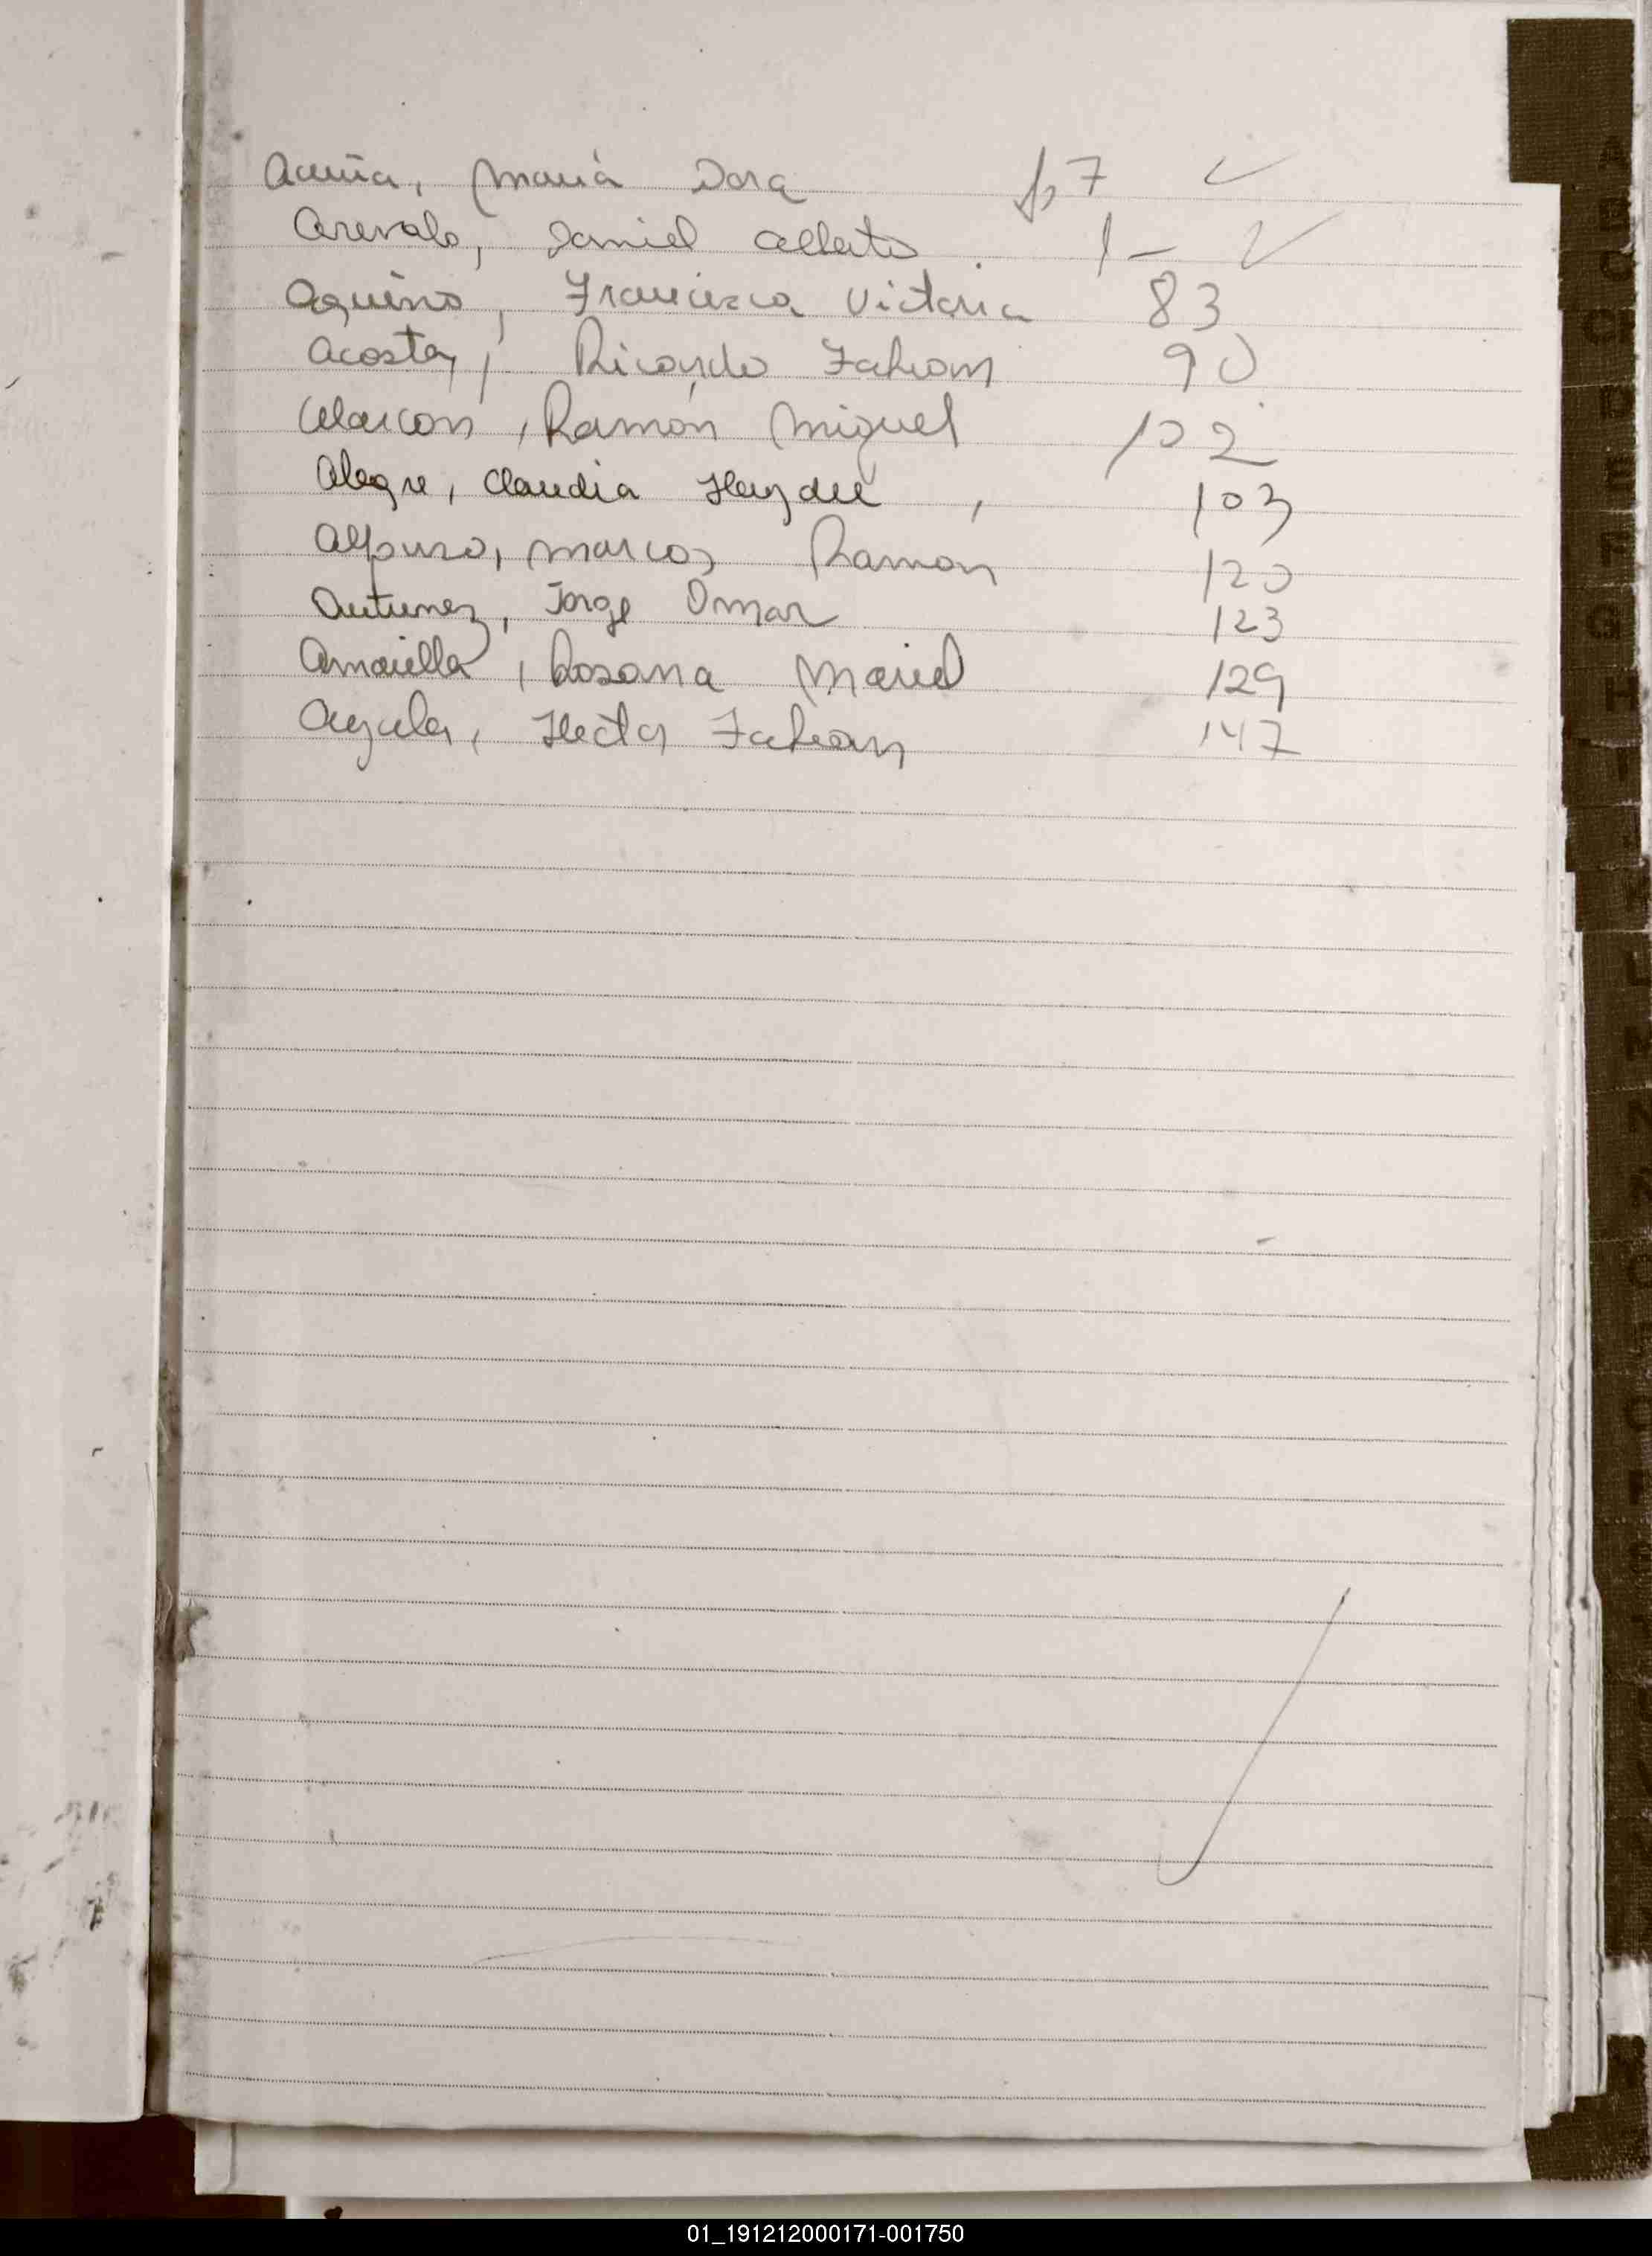 Acuña, María Dora fs 7
Arevalo, Daniel Alberto 1 -
Aquino, Francisca Victoria 83
Acosta, Ricardo Fabian 90
Alarcon, Ramón Miguel 102
Alegre, Claudia Haydee, 103
Alfonso, Marcos Ramon 120
Antunez, Jorge Omar 123
Amarilla, Rosana Mariel 129
Ayala, Hector Fabian 147
01_191212000171-001750